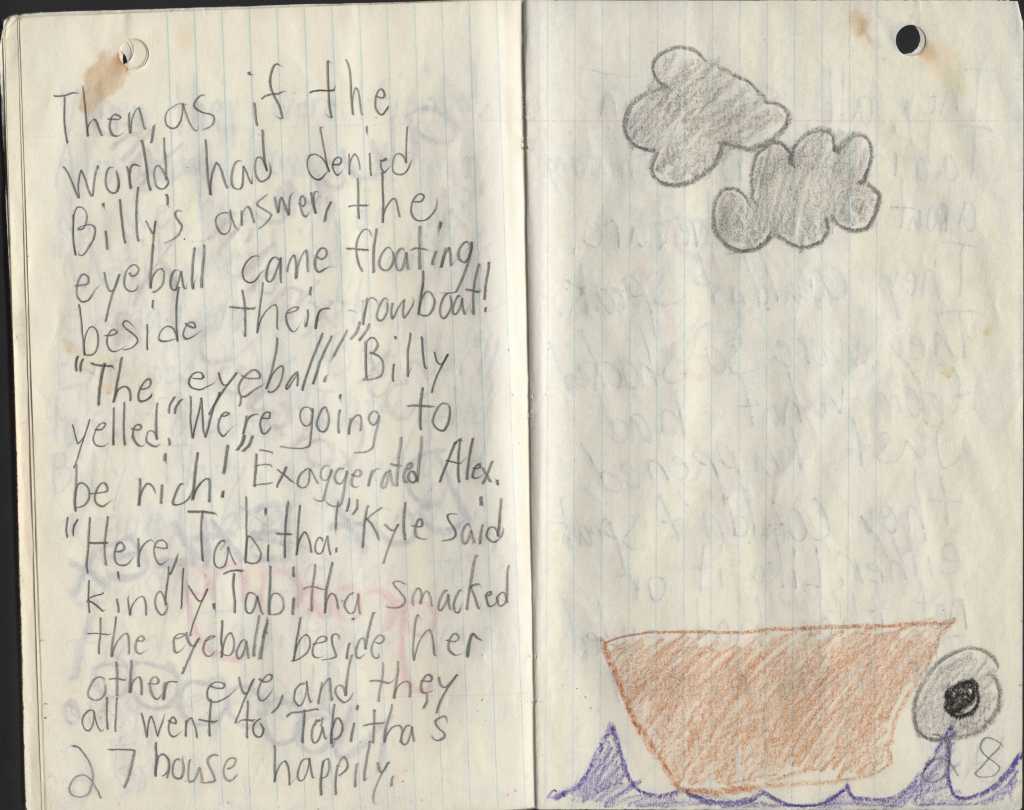 Then, as if the
world had denied
Billy's answer, the
eyeball came floating
beside their rowboat!
"The eyeball!" Billy
yelled. "We're going to
be rich!" Exaggerated Alex.
"Here, Tabitha!" Kyle said
kindly. Tabitha smacked
the eyeball beside her
other eye, and they
all went to Tabitha's
27 house happily.
28